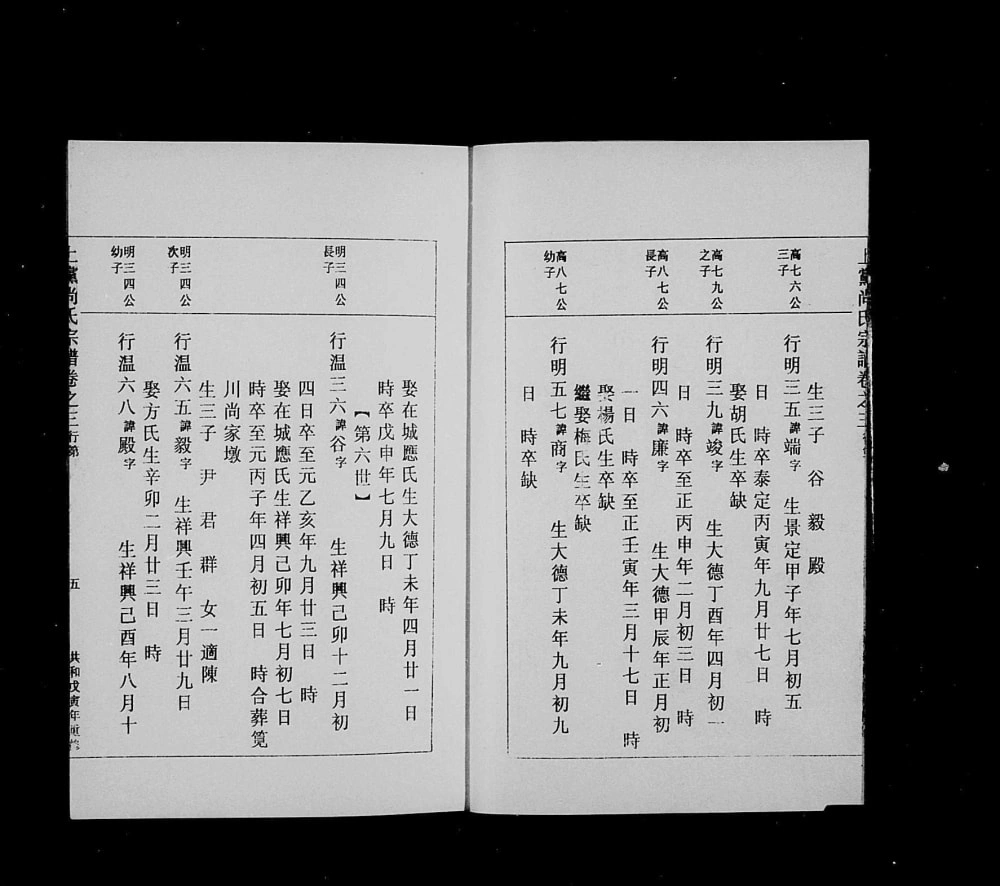 上黨尚氏宗譜卷之三
生三子 谷 毅 殿
高七六公
三子
行明三五諱端字 生景定甲子年七月初五
日 時卒泰定丙寅年九月廿七日 時
娶胡氏生卒缺
高七九公
之子
行明三九諱竣字 生大德丁酉年四月初一
日 時卒至正丙申年二月初三日 時
高八七公
長子
行明四六諱廉字 生大德甲辰年正月初
一日 時卒至正壬寅年三月十七日 時
娶楊氏生卒缺
繼娶梅氏生卒缺
高八七公
幼子
行明五七諱商字 生大德丁未年九月初九
日 時卒缺
娶在城應氏生大德丁未年四月廿一日
時卒戊申年七月九日 時
【第六世】
明三四公
長子
行温三六諱谷字 生祥興己卯十二月初
四日卒至元乙亥年九月廿三日 時
娶在城應氏生祥興己卯年七月初七日
時卒至元丙子年四月初五日 時合葬筧
川尚家墩
生三子 尹 君 群 女一適陳
明三四公
次子
行温六五諱毅字 生祥興壬午三月廿九日
娶方氏生辛卯二月廿三日 時
明三四公
幼子
行温六八諱殿字 生祥興己酉年八月十
上黨尚氏宗譜卷之三 行第
五
共和戊寅年重修